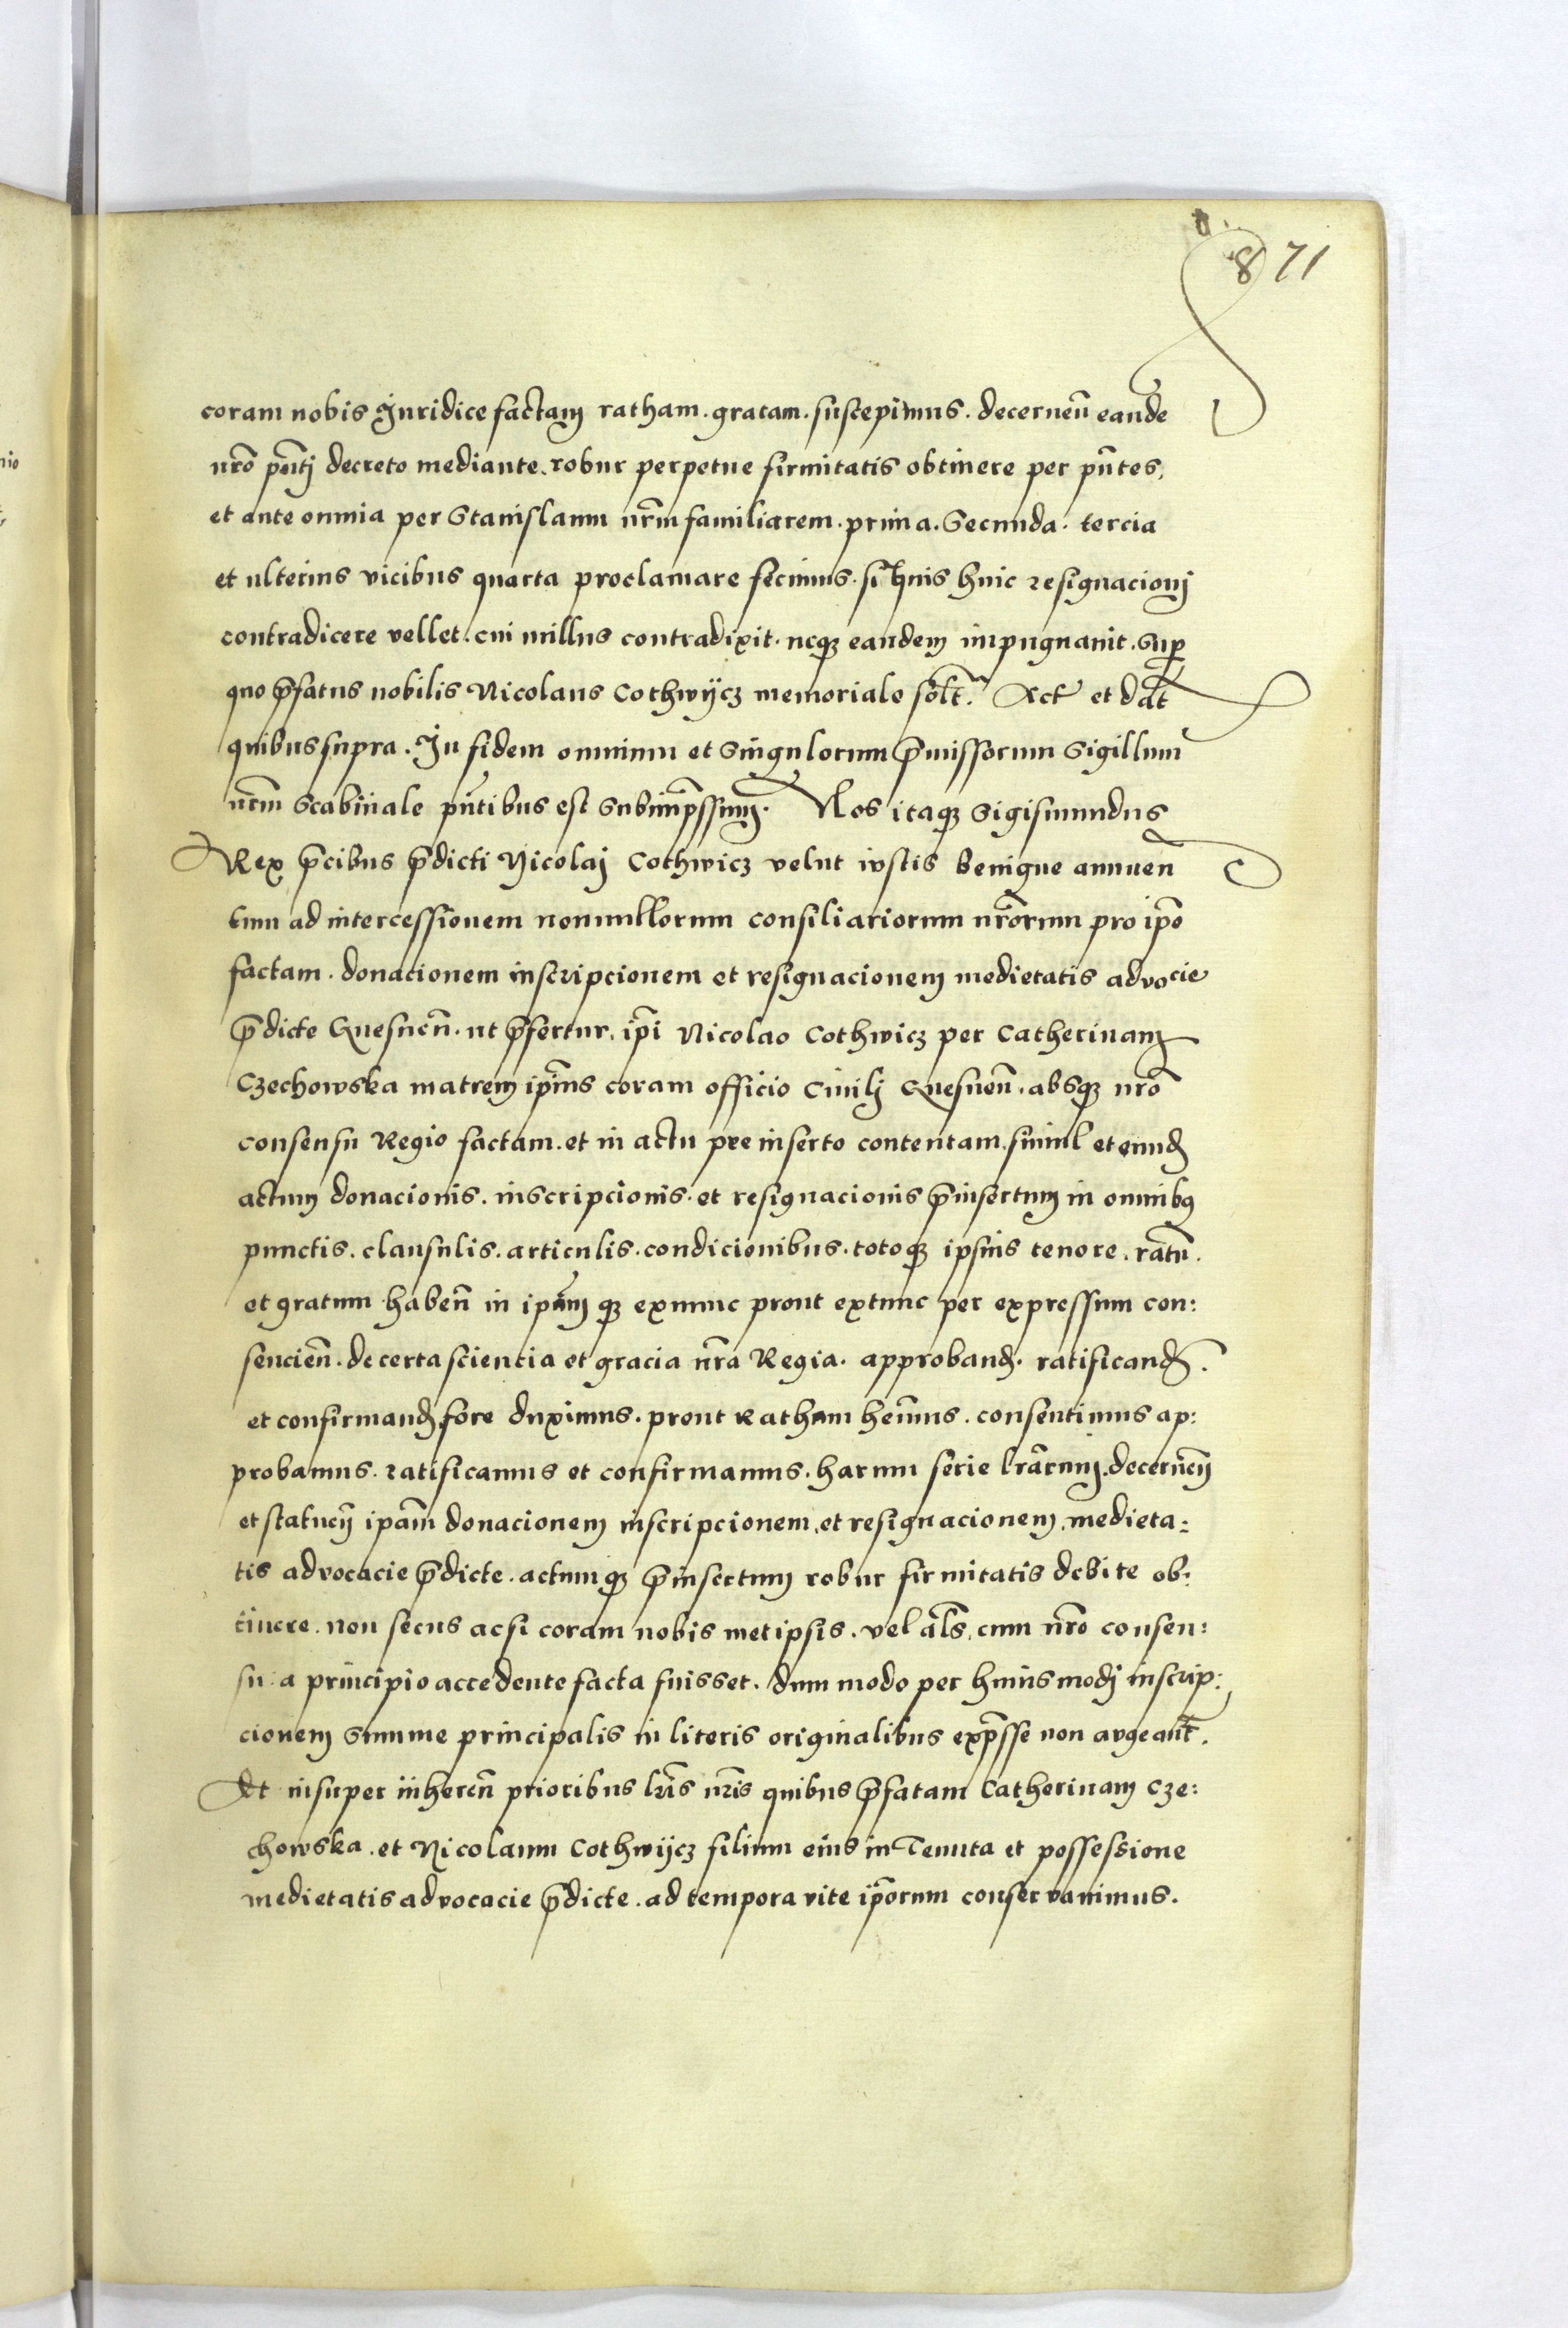 871
coram nobis Juridice factam ratham. gratam. suscepimus. decernen̄ eandē
nr̄o pn̄tj decreto mediante. robur perpetue firmitatis obtinere per pn̄tes,
et ante omnia per Stanislaum nr̄m familiarem. prima. Secunda. tercia
et ulterius vicibus quarta proclamare fecimus. si quis huic resignacionj
contradicere vellet. cui nullus contradixit. neqꝫ eandem impugnauit. Suꝑ
quo p̄fatus nobilis Nicolaus Cothwÿcz memoriale solt̄. Act̄ et dat̄
quibus supra. In fidem omnium et Singulorum p̄missorum Sigillum
nr̄m Scabinale pn̄tibus est Subimp̄ssum. Nos itaqꝫ Sigismundus
Rex p̄cibus p̄dicti Nicolaj Cothwicz velut iustis benigne annuen̄
tum ad intercessionem nonnullorum consiliariorum nr̄orum pro ip̄o
factam. donacionem inscripcionem et resignacionem medietatis advocie
p̄dicte Gnesnen̄. ut p̄fertur. ip̄i Nicolao Cothwicz per Catherinam
Czechowska matrem ip̄ius coram officio Ciuilj Gnesnen̄. absqꝫ nr̄o
consensu Regio factam. et in actu pre inserto contentam. simul et eund̄
actum donacionis. inscripcionis. et resignacionis p̄insertum in omnibꝯ
punctis. clausulis. articulis. condicionibus. totoqꝫ ipsius tenore. ratū.
et gratum haben̄ in ip̄um qꝫ exnunc prout extunc per expressum con:
sencien̄. de certa sciencia et gracia nr̄a Regia. approband̄. ratificand̄.
et confirmand̄ fore duximus. prout Ratham hem̄us. consentimus ap:
probamus. ratificamus et confirmamus. harum serie lr̄arum. decernen̄
et statuen̄ ip̄am donacionem inscripcionem. et resignacionem. medieta:
tis advocacie p̄dicte. actumqꝫ p̄insertum robur firmitatis debite ob:
tinere. non secus acsi coram nobis metipsis. vel al̄s. cum nr̄o consen:
su a principio accedente facta fuisset. dum modo per huiusmodj inscrip:
cionem Summe principalis in literis originalibus exp̄sse non augeant̄.
Et insuper inheren̄ prioribus lr̄is nr̄is quibus p̄fatam Catherinam Cze:
chowska. et Nicolaum Cothwÿcz filium eius in Tenuta et possessione
medietatis advocacie p̄dicte. ad tempora vite ip̄orum conservauimus.